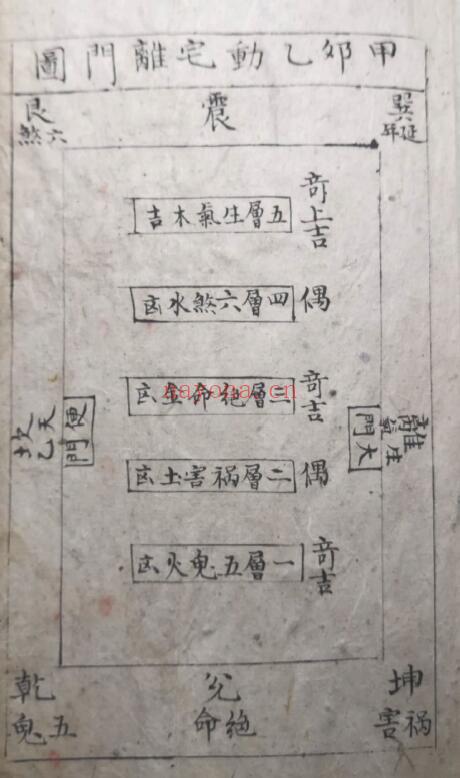 甲卯乙動宅離門圖
巽
延年
震
艮
六煞
竒上吉
五層生氣木吉
偶
四層六煞水凶
竒吉
三層絶命金凶
偶
二層禍害土凶
竒吉
一層五鬼火凶
離
生氣
大門
便門
坎
天乙
坤
禍害
兌
絶命
乾
五鬼